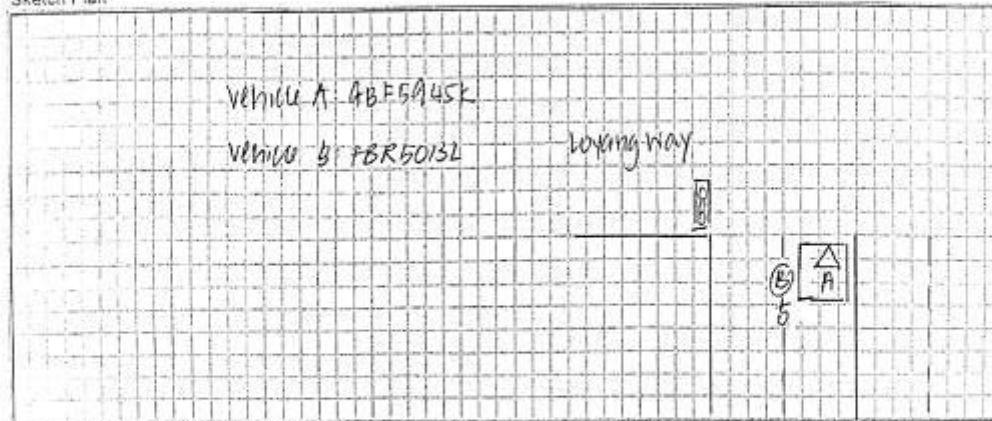 Sketch Plan
Vehicle A: GBF5945K
Vehicle B: FBR5013L
Loyang Way
B
A